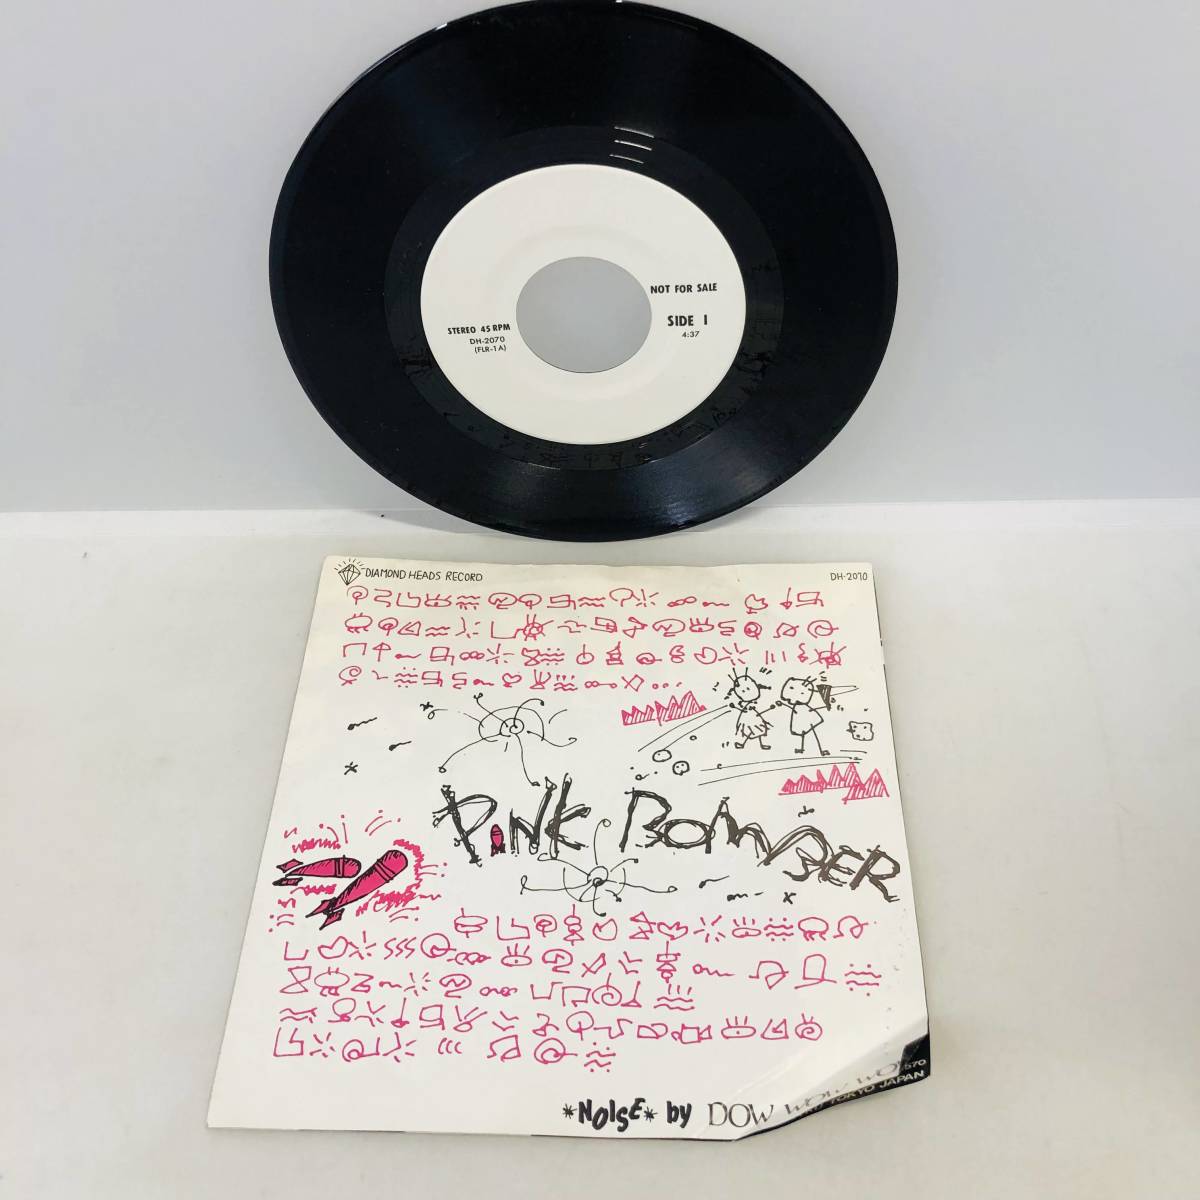 NOT FOR SALE
STEREO 45 RPM
SIDE 1
DH-2070
4:37
(FLR-1A)
DIAMOND HEADS RECORD
DH-2070
PiNK BOMBER
*NOISE* by DOW WOW WOW
570
TOKYO JAPAN